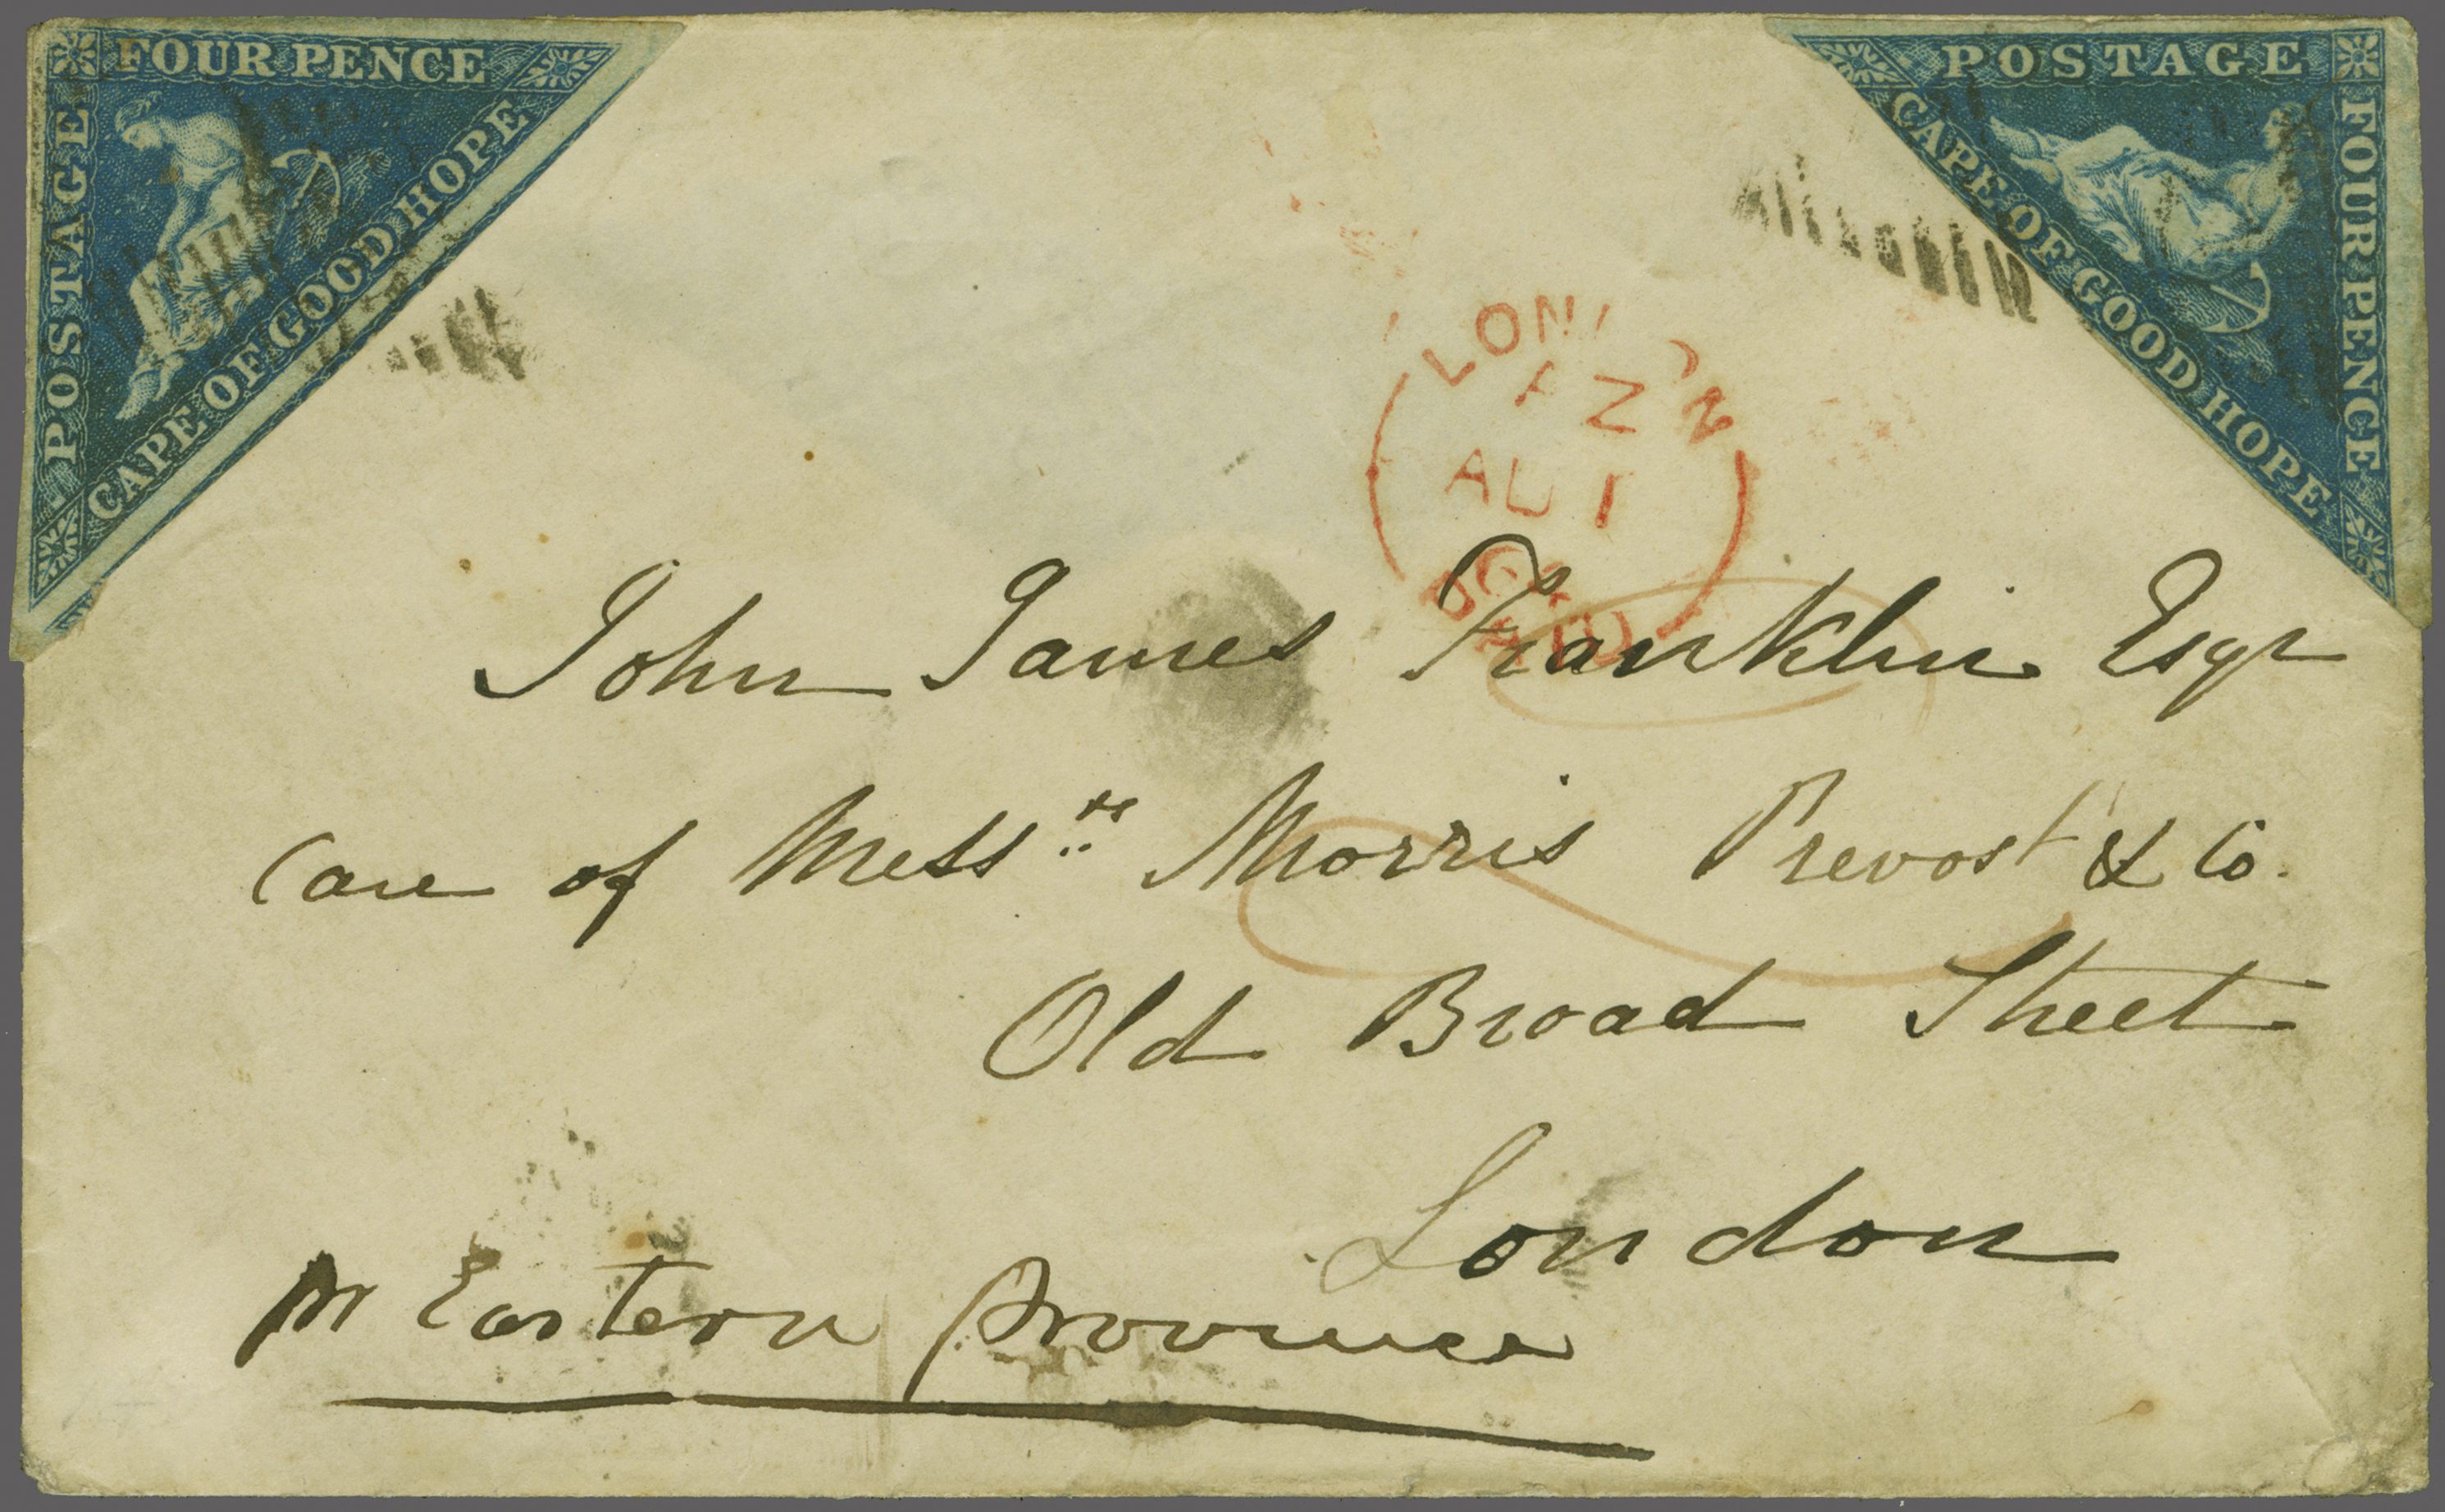 FOUR PENCE
POSTAGE
CAPE OF GOOD HOPE
POSTAGE
FOUR PENCE
CAPE OF GOOD HOPE
LONDON
AZ
AU 1
PAID
John James Franklin Esqr
Care of Messrs Morris Prevost & Co.
Old Broad Street
London
pr Eastern Province